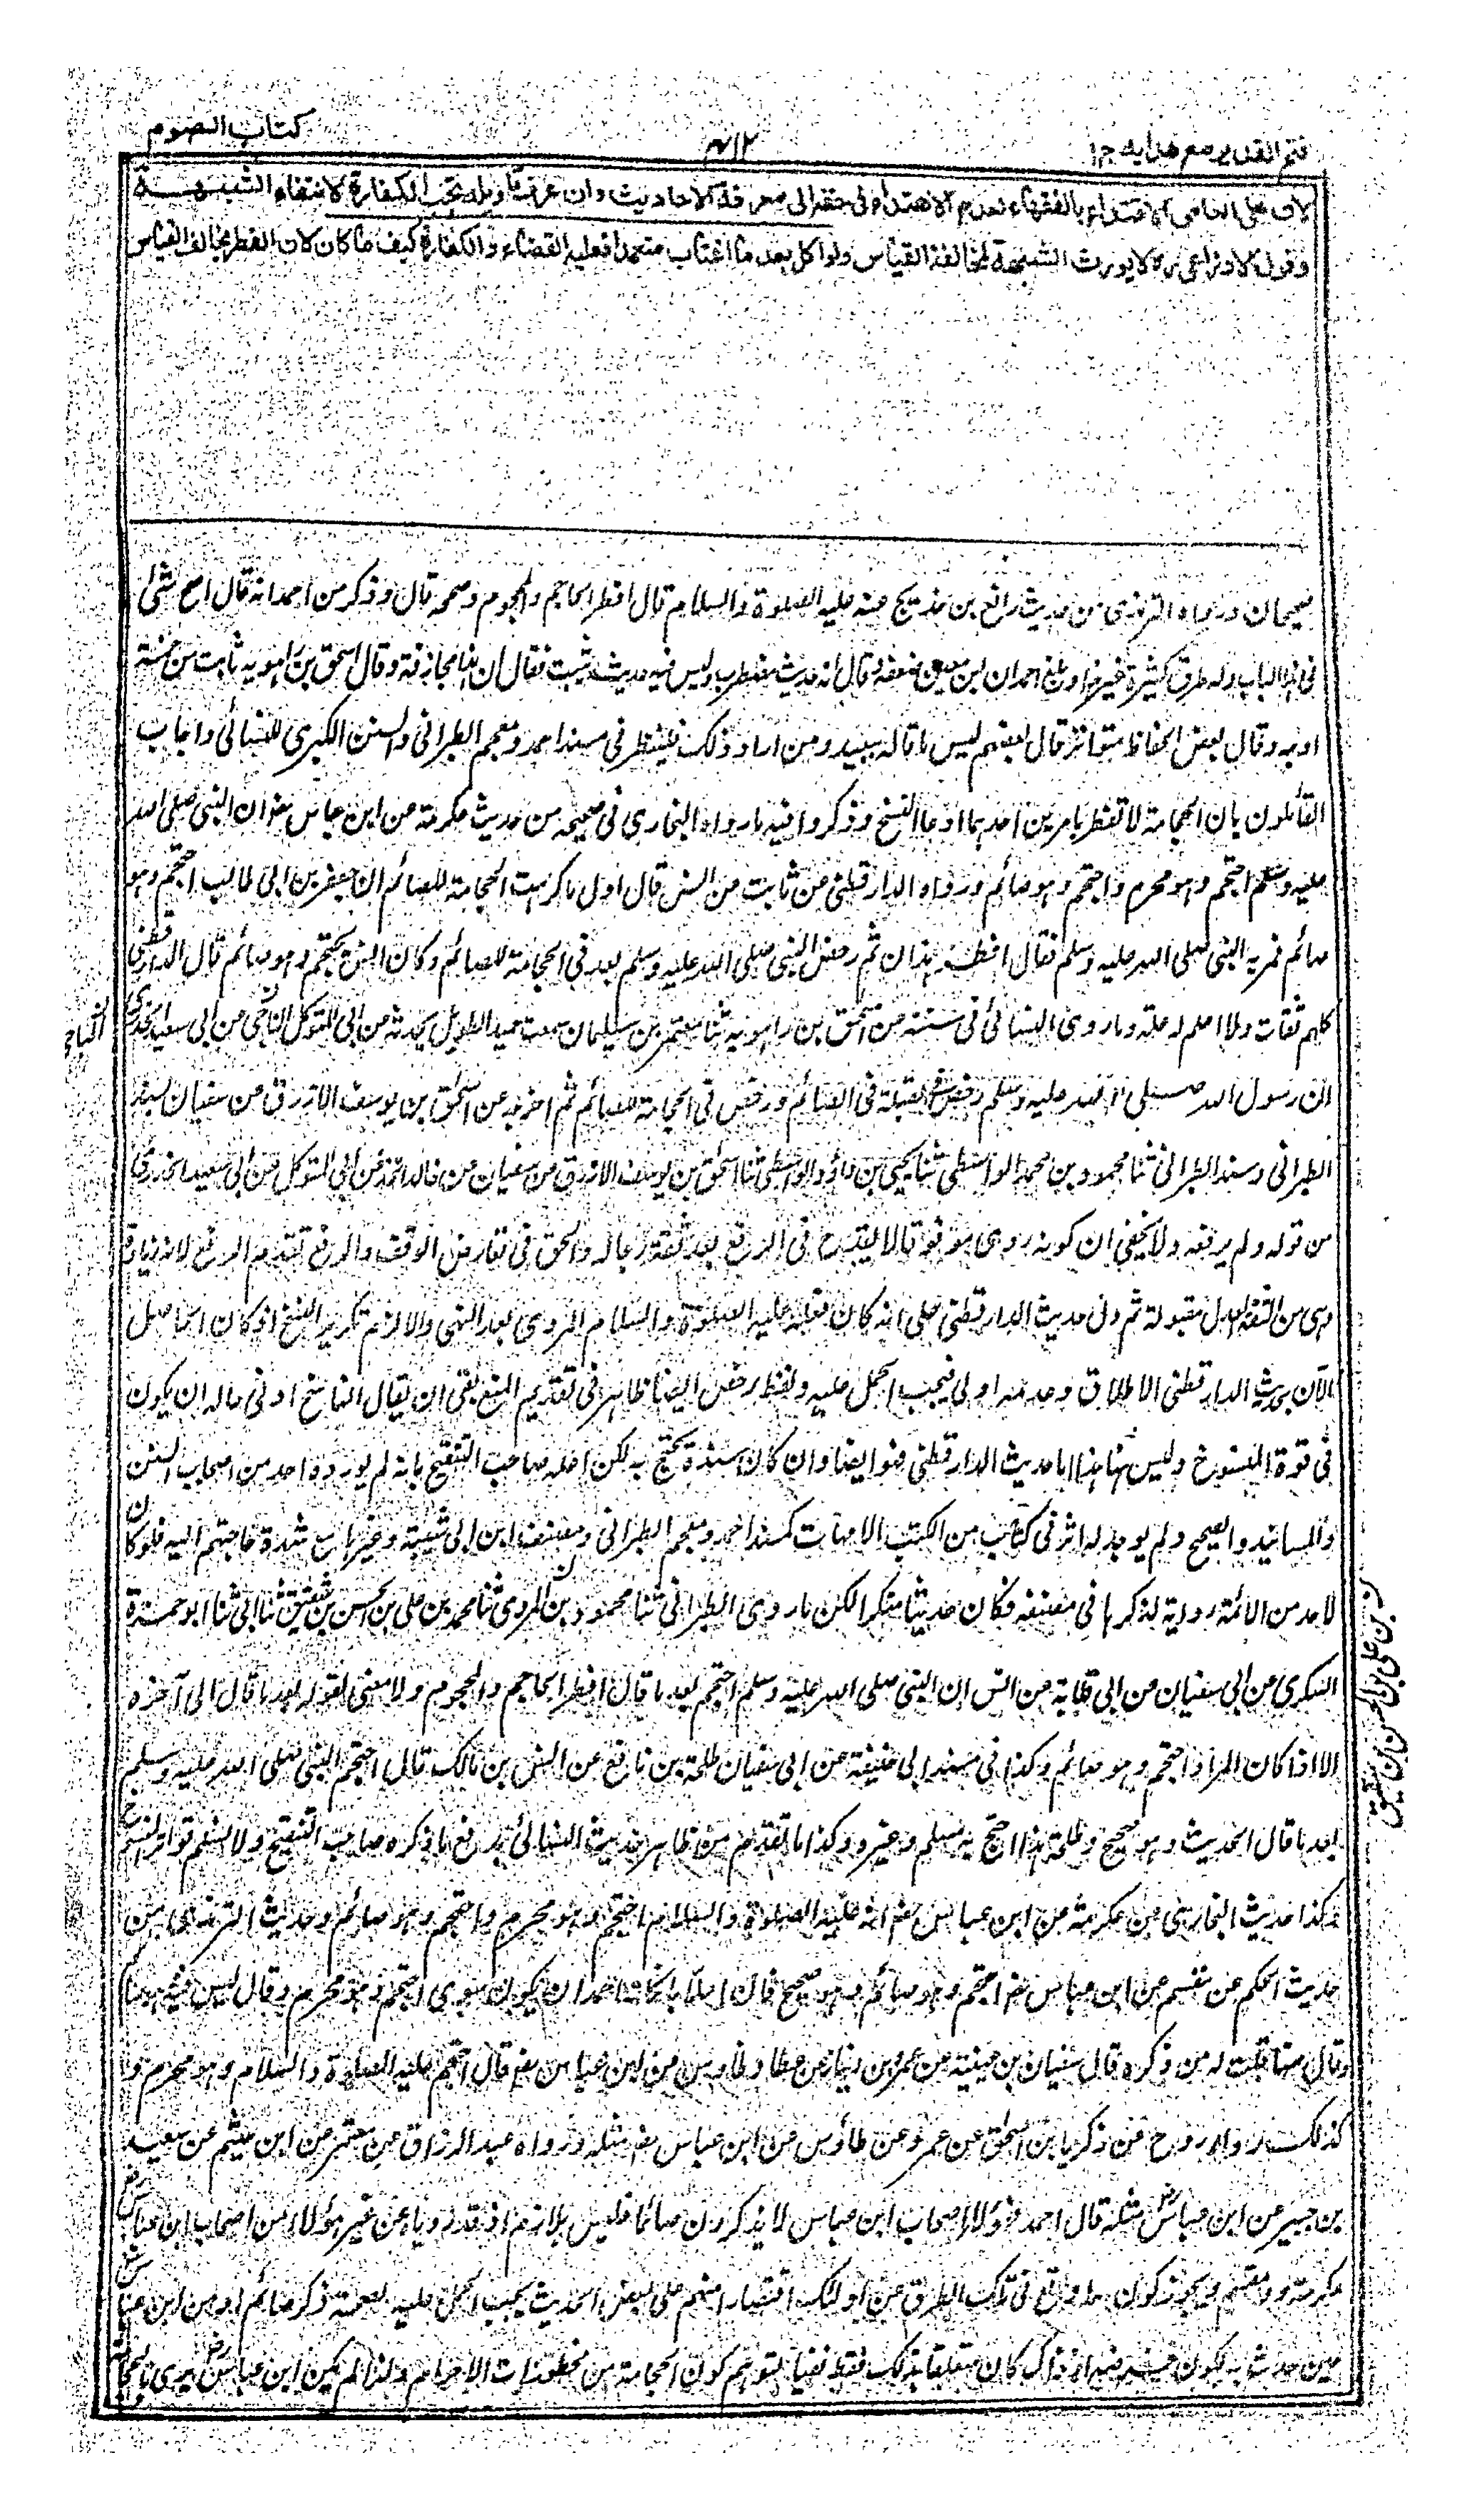 فتح القدير مع هدايه ج١
٣١٢
كتاب الصوم
لان على العامى الاقتداء بالفقهاء لعدم الاهتداء فى حقه الى معرفة الاحاديث وان عرف تاويله تجب الكفارة لانتفاء الشبهة
وقول الاوزاعى ره لا يورث الشبهة لمخالفة القياس ولو اكل بعد ما اغتاب متعمدا فعليه القضاء والكفارة كيف ما كان لان الفطر يخالف القياس
صحيحان ورواه الترمذى من حديث رافع بن خديج عنه عليه الصلوة والسلام قال افطر الحاجم والمحجوم وصححه قال وذكر عن احمد انه قال اصح شئ
فى هذا الباب وله طرق كثيرة غير هذا وبلغ احمد ان ابن معين ضعفه وقال انه حديث مضطرب وليس فيه حديث يثبت فقال ان هذا مجازفة وقال اسحق بن راهويه ثابت من خمسة
اوجه وقال بعض الحفاظ متواتر قال بعضهم ليس ما قاله ببعيد ومن اراد ذلك فلينظر فى مسند احمد ومعجم الطبرانى والسنن الكبرى للنسائى واجاب
القائلون بان الحجامة لا تفطر بامرين احدهما ادعا النسخ وذكروا فيه ما رواه البخارى فى صحيحه من حديث عكرمة عن ابن عباس رضه ان النبى صلى الله
عليه وسلم احتجم وهو محرم واحتجم وهو صائم ورواه الدارقطنى عن ثابت عن انس قال اول ما كرهت الحجامة للصائم ان جعفر بن ابى طالب احتجم وهو
صائم فمر به النبى صلى الله عليه وسلم فقال افطر هذان ثم رخص النبى صلى الله عليه وسلم بعد فى الحجامة للصائم وكان انس يحتجم وهو صائم قال الدارقطنى
كلهم ثقات ولا اعلم له علة وما روى النسائى فى سننه عن اسحق بن راهويه ثنا معتمر بن سليمان سمعت حميد الطويل يحدثه عن ابى المتوكل الناجى عن ابى سعيد الخدرى
الناجى
ان رسول الله صلى الله عليه وسلم رخص فى القبلة فى الصائم ورخص فى الحجامة للصائم ثم اخرجه عن اسحق بن يوسف الازرق عن سفيان بسند
الطبرانى وسند الطبرانى ثنا محمود بن محمد الواسطى ثنا يحيى بن داؤد الواسطى ثنا اسحق بن يوسف الازرق عن سفيان عن خالد الحذاء عن ابى المتوكل عن ابى سعيد الخدرى
من قوله ولم يرفعه ولا يخفى ان كونه روى موقوفا لا يقدح فى الرفع بعد ثقة رجاله والحق فى تعارض الوقف والرفع تقديم الرفع لانه زيادة
وهى من الثقة العدل مقبولة ثم دل حديث الدارقطنى على انه كان فعله عليه الصلوة والسلام المروى بعد النهى والا لزم تكرير النسخ اذ كان الحاصل
الآن بحديث الدارقطنى الاطلاق وعدمه اولى فيجب الحمل عليه ولفظ رخص ايضا ظاهر فى تقديم المنع بقى ان يقال الناسخ ادنى حاله ان يكون
فى قوة المنسوخ وليس هنا هذا اما حديث الدارقطنى فهو ايضا وان كان سنده يحتج به لكن اعله صاحب التنقيح بانه لم يورده احد من اصحاب السنن
والمسانيد والصحيح ولم يوجد له اثر فى كتاب من الكتب الامهات كمسند احمد ومعجم الطبرانى ومصنف ابن ابى شيبة وغيرها مع شدة حاجتهم اليه فلو كان
لاحد من الائمة رواية لذكرها فى مصنفه فكان حديثا منكرا لكن ما روى الطبرانى ثنا محمود بن المروزى ثنا محمد بن على بن الحسن بن شقيق ثنا ابى ثنا ابو حمزة
بن على بن الحسن بن شقيق
السكرى عن ابى سفيان عن ابى قلابة عن انس ان النبى صلى الله عليه وسلم احتجم بعد ما قال افطر الحاجم والمحجوم ولا معنى لقوله بعد ما قال الى آخره
الا اذا كان المراد احتجم وهو صائم وكذا فى مسند ابى حنيفة عن ابى سفيان طلحة بن نافع عن انس بن مالك قال احتجم النبى صلى الله عليه وسلم
بعد ما قال الحديث وهو صحيح وطلحة هذا احتج به مسلم وغيره وكذا ما تقدم من ظاهر حديث النسائى يدفع ما ذكره صاحب التنقيح ولا يسلم تواتر النسخ
وكذا حديث البخارى عن عكرمة عن ابن عباس رضه انه عليه الصلوة والسلام احتجم وهو محرم واحتجم وهو صائم وحديث الترمذى من
حديث الحكم عن مقسم عن ابن عباس رضه احتجم وهو صائم وهو صحيح فان اعلا بانكار احمد ان يكون سوى احتجم وهو محرم وقال ليس فيه صائم
وقال مهنا قلت له من ذكره قال سفيان بن عيينة عن عمرو بن دينار عن عطا وطاوس عن ابن عباس رضه قال احتجم عليه الصلوة والسلام وهو محرم و
كذلك رواه روح عن زكريا بن اسحق عن عمرو عن طاؤس عن ابن عباس رضه مثله ورواه عبد الرزاق عن معتمر عن ابن خيثم عن سعيد
بن جبير عن ابن عباس رض مثله قال احمد فهؤلاء اصحاب ابن عباس لا يذكرون صائما فليس بلازم اذ قد رويناه عن غير هؤلاء من اصحاب ابن عباس رض
عكرمة ومقسم ويجوز كون ما وقع فى تلك الطرق عن اولئك اقتصارا منهم على بعض الحديث يجب الحمل عليه لصحة ذكر صائم او من ابن عباس رض
حين حدث به لكون غرضه اذ ذاك كان متعلقا بذلك فقط نفيا لتوهم كون الحجامة من محظورات الاحرام ولذا لم يكن ابن عباس رض يرى بالحجامة